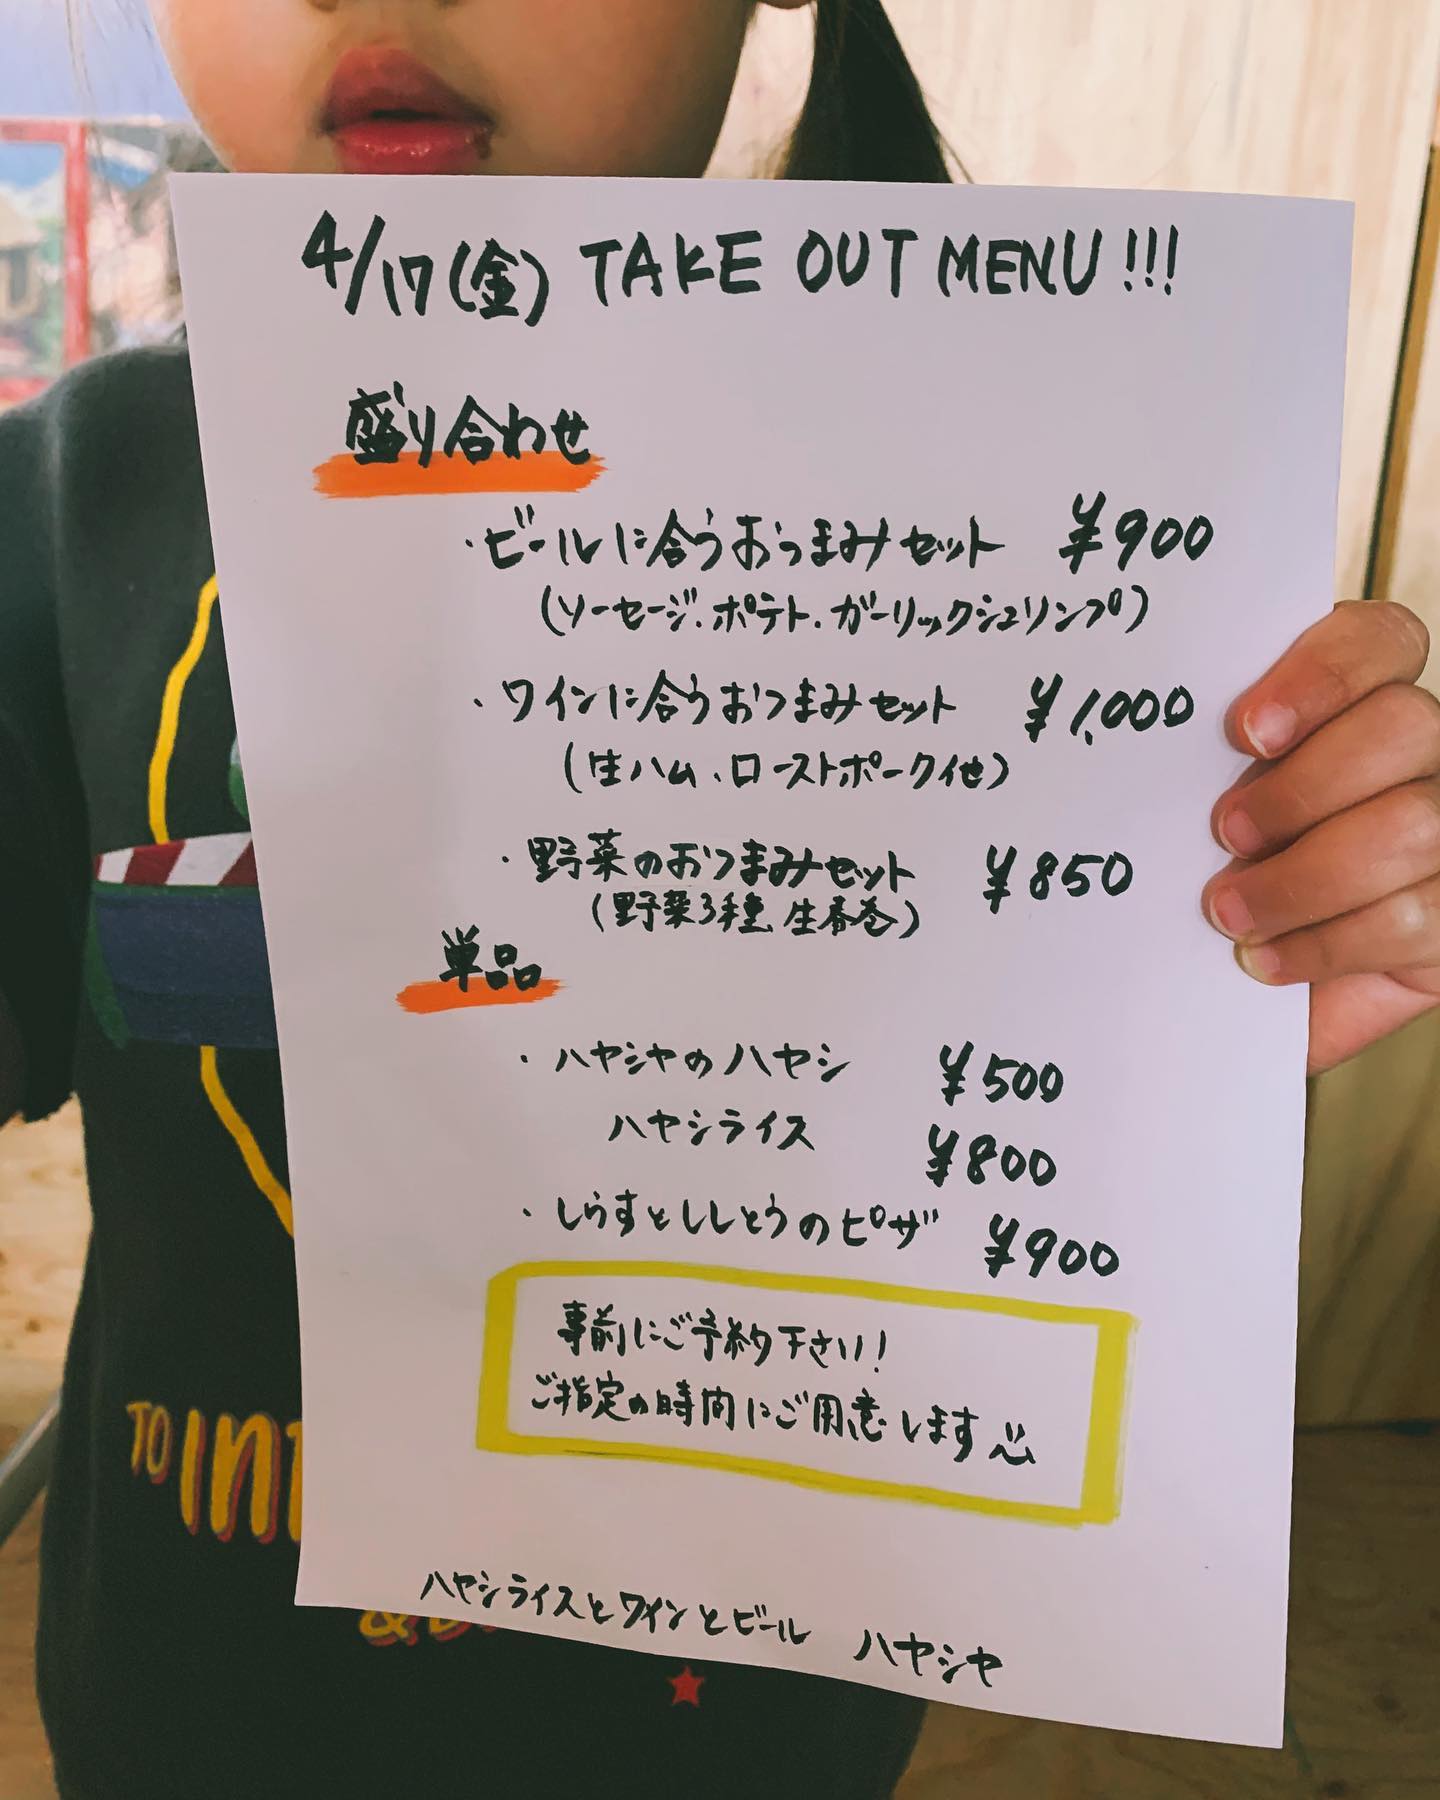 4/17(金) TAKE OUT MENU!!!
盛り合わせ
・ビールに合うおつまみセット ¥900
(ソーセージ.ポテト.ガーリックシュリンプ)
・ワインに合うおつまみセット ¥1,000
(生ハム、ローストポーク他)
・野菜のおつまみセット ¥850
(野菜3種、生春巻)
単品
・ハヤシヤのハヤシ ¥500
ハヤシライス ¥800
・しらすとししとうのピザ ¥900
事前にご予約下さい!
ご指定の時間にご用意します
ハヤシライスとワインとビール ハヤシヤ
TO